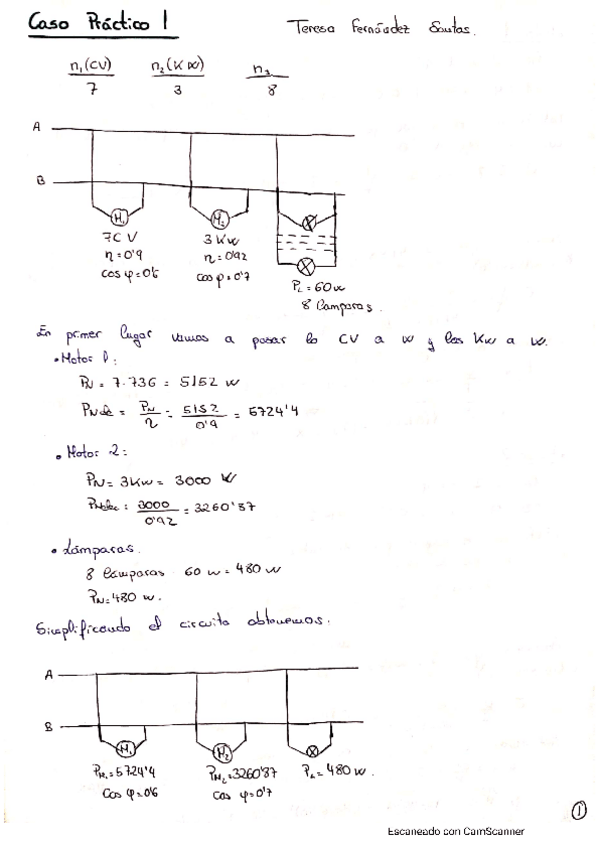 Caso Práctico 1
Teresa Fernández Santas.
n₁(CV) n₂(KW) n₃
7 3 8
A
B
M₁ M₂
7CV 3KW
η=0'9 η=0'92
cos φ=0'6 cos φ=0'7
PL=60w
8 lamparas.
En primer lugar vamos a pasar lo CV a W y los KW a W.
• Motor 1:
PN = 7·736 = 5152 W
= PN/η = 5152/0'9 = 5724'4
• Motor 2:
PN = 3KW = 3000 W
3000/0'92 = 3260'87
• Lámparas.
8 lámparas 60 w = 480 w
PN=480 w.
Simplificando el circuito obtenemos.
A
B
M₁ M₂
PM₁=5724'4 PM₂=3260'87 PL=480w.
Cos φ=0'6 Cos φ=0'7
1
Escaneado con CamScanner